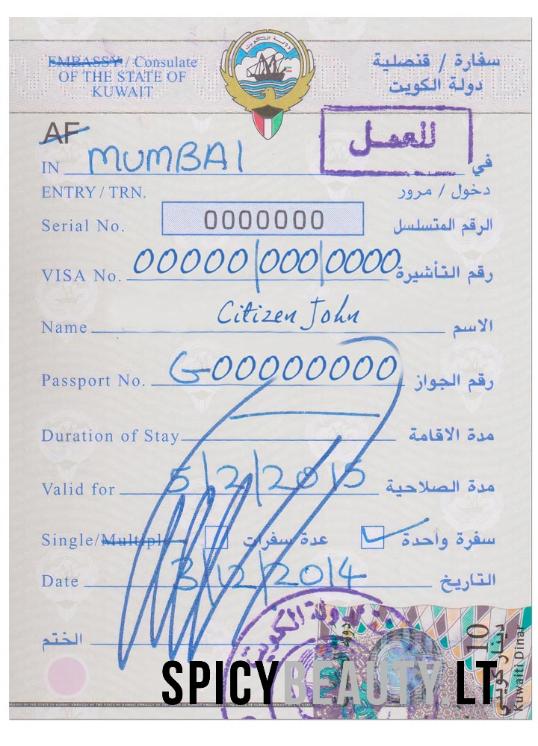 EMBASSY / Consulate سفارة / قنصلية
OF THE STATE OF
KUWAIT دولة الكويت
AF
للعمل
IN MUMBAI في
ENTRY / TRN. دخول / مرور
Serial No. 0000000 الرقم المتسلسل
VISA No. 00000/000/0000 رقم التأشيرة
Name Citizen John الاسم
Passport No. G-00000000 رقم الجواز
Duration of Stay مدة الاقامة
Valid for 5/2/2015 مدة الصلاحية
Single/Multiple عدة سفرات سفرة واحدة
Date 3/12/2014 التاريخ
الختم
دولة الكويت
10
دينار كويتي
Kuwaiti Dinar
SPICYBEAUTY LT